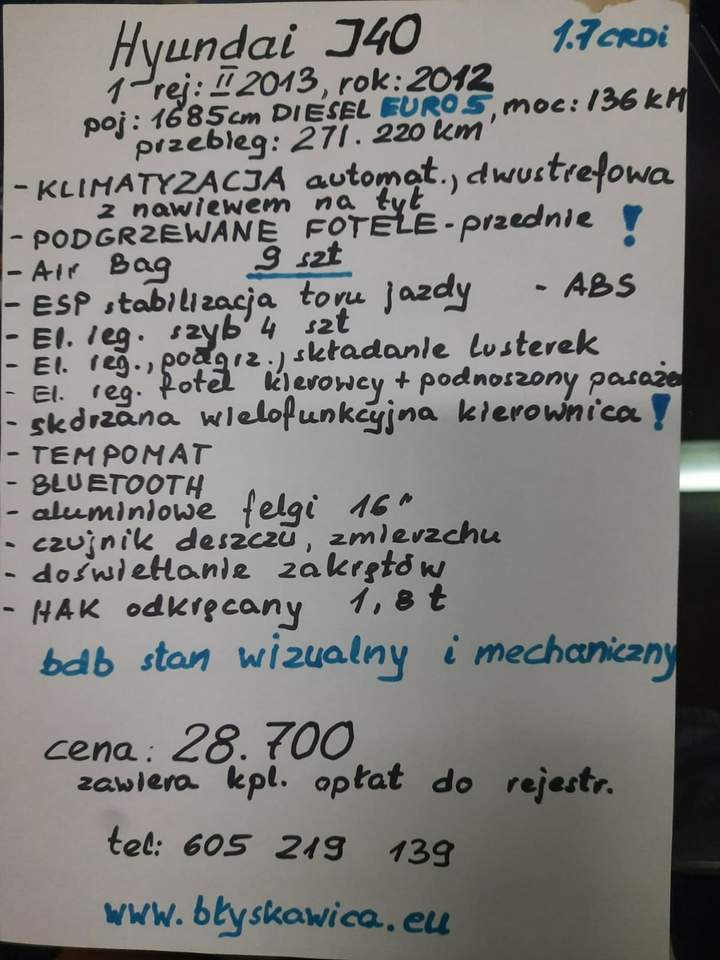 Hyundai I40 1.7 CRDi
1 rej: II 2013, rok: 2012
poj: 1685cm DIESEL EURO 5, moc: 136 kM
przebieg: 271.220 km
- KLIMATYZACJA automat., dwustrefowa
z nawiewem na tył
- PODGRZEWANE FOTELE - przednie !
- Air Bag 9 szt
- ESP stabilizacja toru jazdy - ABS
- El. reg. szyb 4 szt
- El. reg., podgrz., składanie lusterek
- El. reg. fotel kierowcy + podnoszony pasaże
- skórzana wielofunkcyjna kierownica !
- TEMPOMAT
- BLUETOOTH
- aluminiowe felgi 16"
- czujnik deszczu, zmierzchu
- doświetlanie zakrętów
- HAK odkręcany 1,8 t
bdb stan wizualny i mechaniczny
cena: 28.700
zawiera kpl. opłat do rejestr.
tel: 605 219 139
www.błyskawica.eu